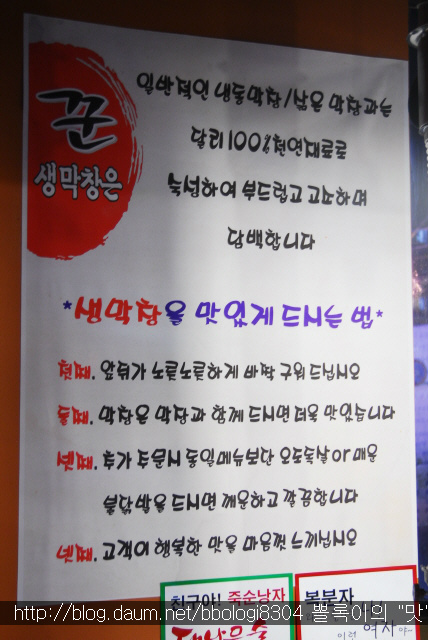 꾼
생막창은
일반적인 냉동막창/삶은 막창과는
달리 100%천연재료로
숙성하여 부드럽고 고소하며
담백합니다
*생막창을 맛있게 드시는 법*
첫째. 앞뒤가 노릇노릇하게 바짝 구워 드십시오
둘째. 막창은 막장과 함께 드시면 더욱 맛있습니다
셋째. 추가 주문시 동일메뉴보단 오도독살or매운
불닭발을 드시면 개운하고 깔끔합니다
넷째. 고객이 행복한 맛을 마음껏 느끼십시오
친구야! 죽순낭자
복분자
이런 여자야~
http://blog.daum.net/bbologi8304 뽈록이의 "맛"